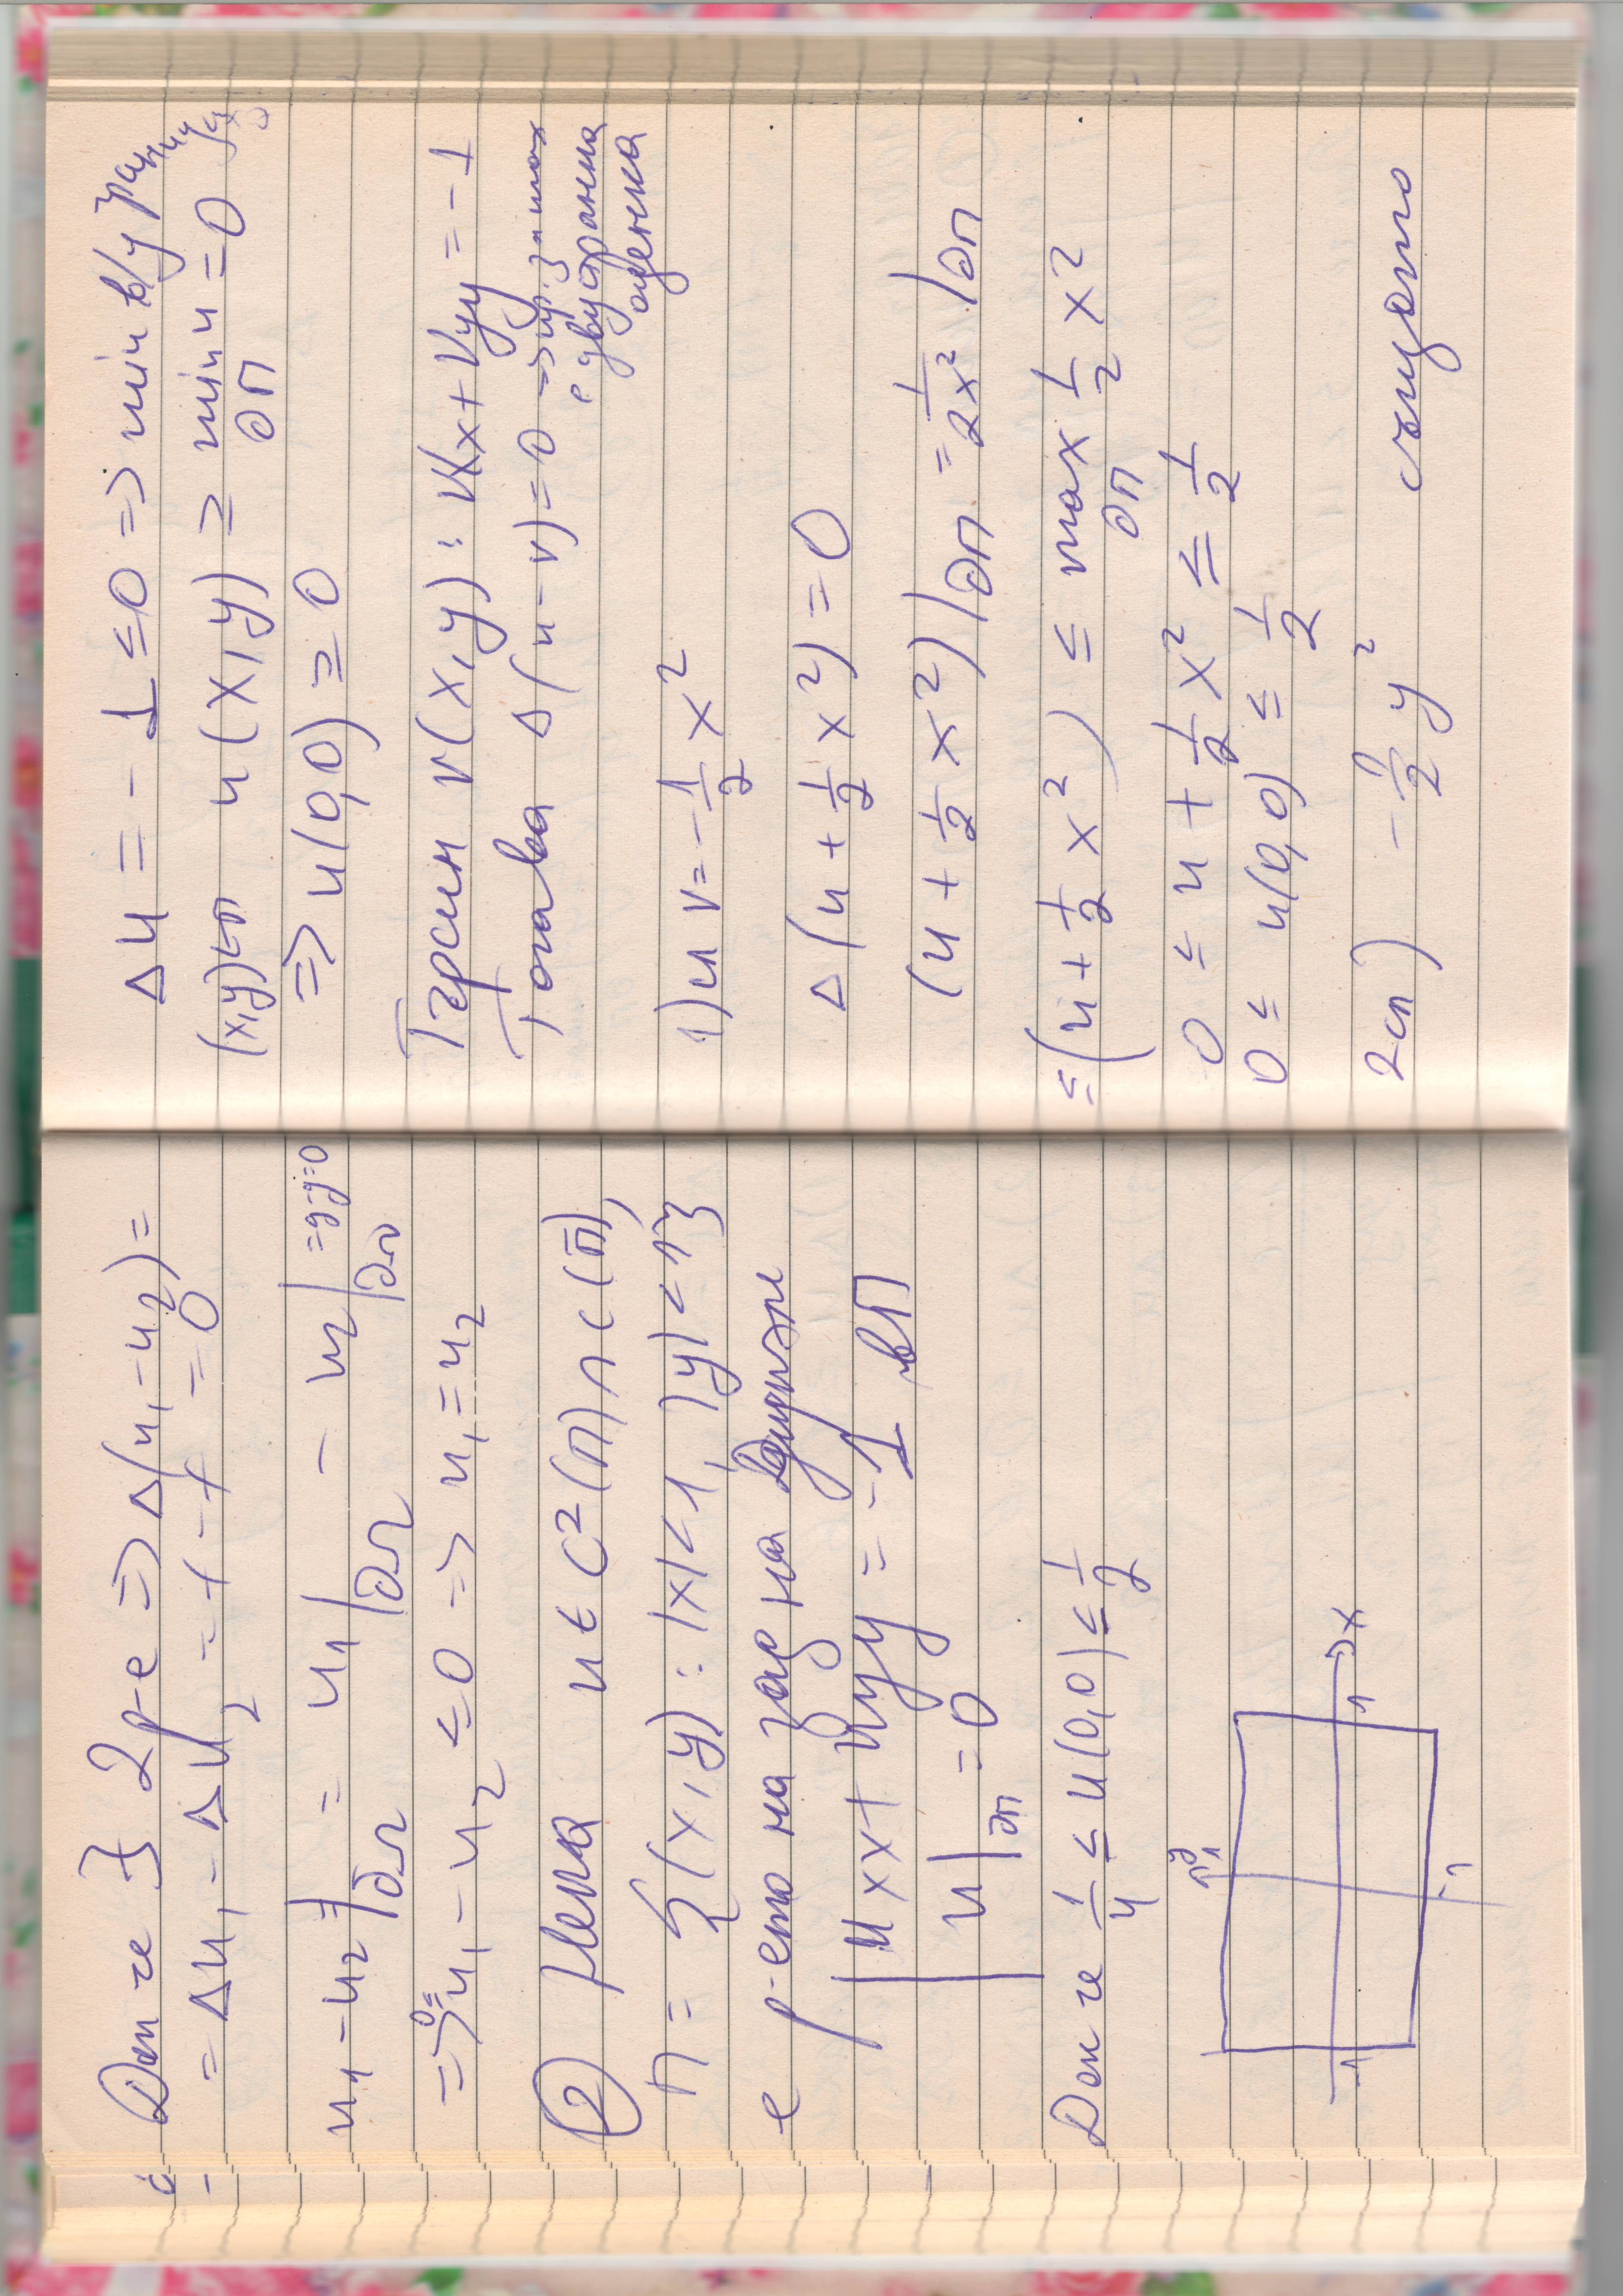 Доп че ∃ 2 р-е => Δ(u₁-u₂) =
= Δu₁ - Δu₂ = f - f = 0
u₁-u₂|∂Ω = u₁|∂Ω - u₂|∂Ω = g-g=0
=> 0 ≤ u₁-u₂ ≤ 0 => u₁ = u₂
② Нека u ∈ C²(П) ∩ C(П̄),
П = {(x,y) : |x|<1, |y|<1}
е р-ето на зад на Дирихле
| uxx + uyy = -1 в П
| u|∂П = 0
Док че 1/4 ≤ u(0,0) ≤ 1/2
y
1
-1 1 x
-1
Δu = -1 ≤ 0 => min в/у
(x,y)∈П u(x,y) ≥ min u = 0
∂П
=> u(0,0) ≥ 0
Търсим v(x,y) : vxx + vyy = -1
Тогава Δ(u-v) = 0 => пр. за max
е двустранна
оценка
1) v = -1/2 x²
Δ(u + 1/2 x²) = 0
(u + 1/2 x²)|∂П = 1/2 x²|∂П
≤ (u + 1/2 x²) ≤ max 1/2 x²
∂П
0 ≤ u + 1/2 x² ≤ 1/2
0 ≤ u(0,0) ≤ 1/2
2сл) -1/2 y² същото